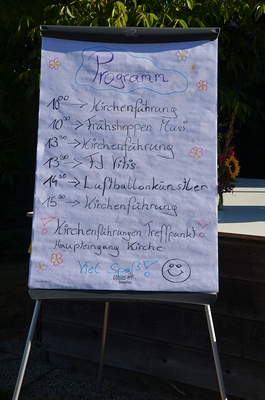 Programm
10⁰⁰ → Kirchenführung
10³⁰ → Frühshoppen Musi
13⁰⁰ → Kirchenführung
13³⁰ → TJ Vitis
14³⁰ → Luftballonkünstler
15³⁰ → Kirchenführung
! Kirchenführungen Treffpunkt !
Haupteingang Kirche
Viel Spaß!